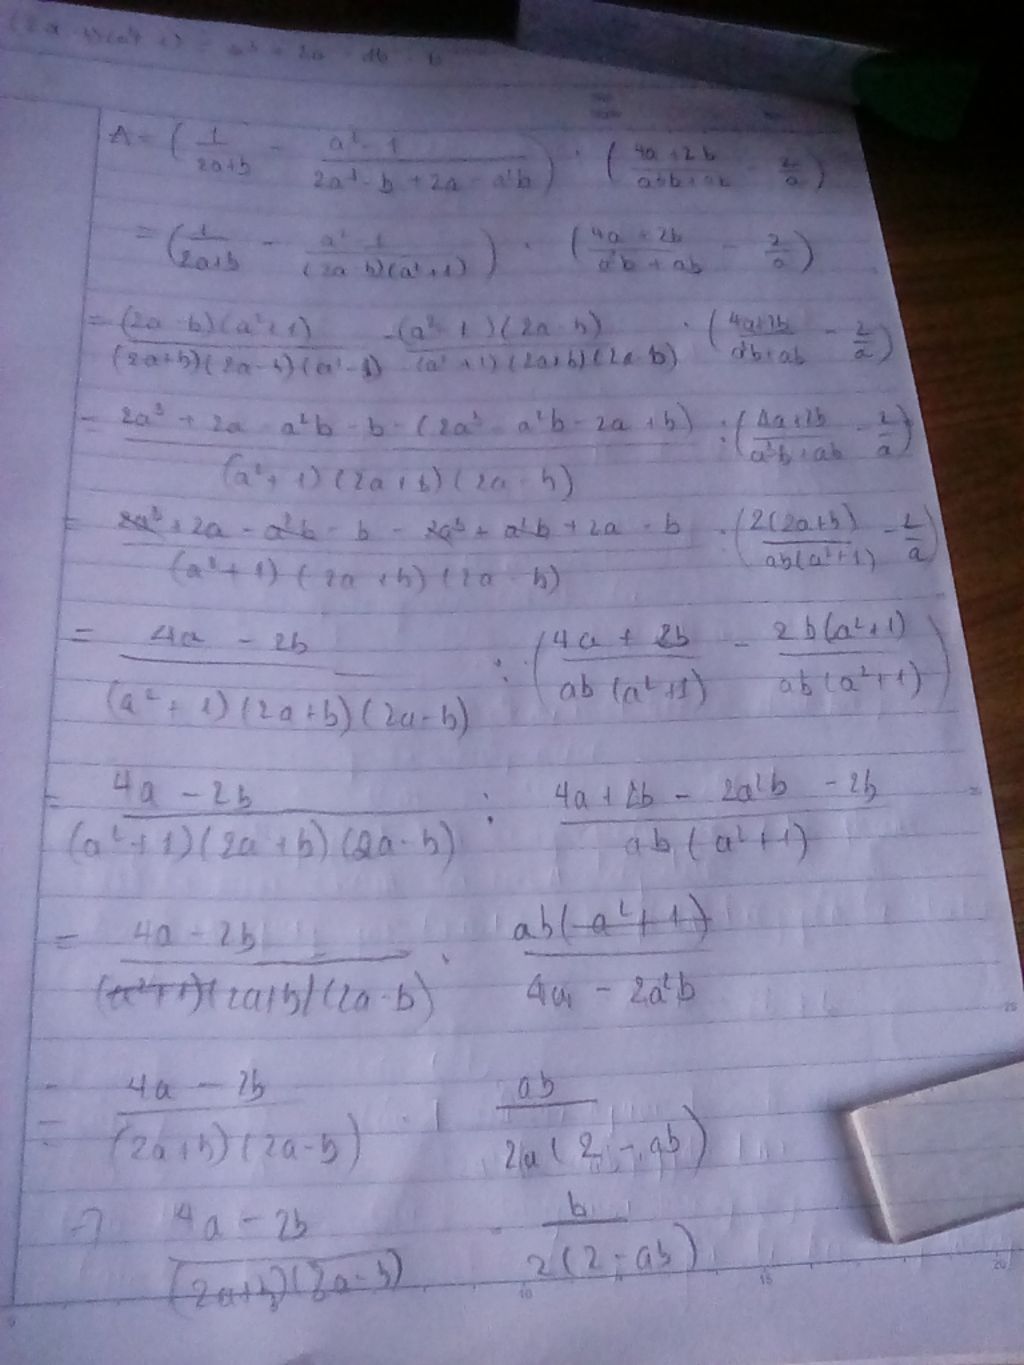 A = ( 1/(2a+b) - (a² - 1)/(2a³ - b + 2a - a²b) ) : ( (4a + 2b)/(a³b + ab) - 2/a )
= ( 1/(2a+b) - (a² - 1)/((2a - b)(a² + 1)) ) : ( (4a + 2b)/(a³b + ab) - 2/a )
= (2a - b)(a² + 1)/((2a+b)(2a-b)(a² - 1) - (a² - 1)(2a - b)/((a² + 1)(2a+b)(2a-b) : ( (4a+2b)/(a³b+ab) - 2/a )
= 2a³ + 2a - a²b - b - (2a³ - a²b - 2a + b)/((a² + 1)(2a+b)(2a-b)) : ( (4a+2b)/(a³b+ab) - 2/a )
= 2a³ + 2a - a²b - b - 2a³ + a²b + 2a - b/((a² + 1)(2a+b)(2a-b)) : ( 2(2a+b)/(ab(a²+1)) - 2/a )
= (4a - 2b)/((a² + 1)(2a+b)(2a-b)) : ( (4a + 2b)/(ab(a²+1)) - 2b(a²+1)/(ab(a²+1)) )
= (4a - 2b)/((a² + 1)(2a+b)(2a-b)) : (4a + 2b - 2a²b - 2b)/(ab(a²+1))
= (4a - 2b)/((a²+1)(2a+b)(2a-b)) . ab(a²+1)/(4a - 2a²b)
= (4a - 2b)/((2a+b)(2a-b)) . ab/(2a(2 - ab))
→ (4a - 2b)/((2a+b)(2a-b)) . b/(2(2 - ab))
10 15 20
25